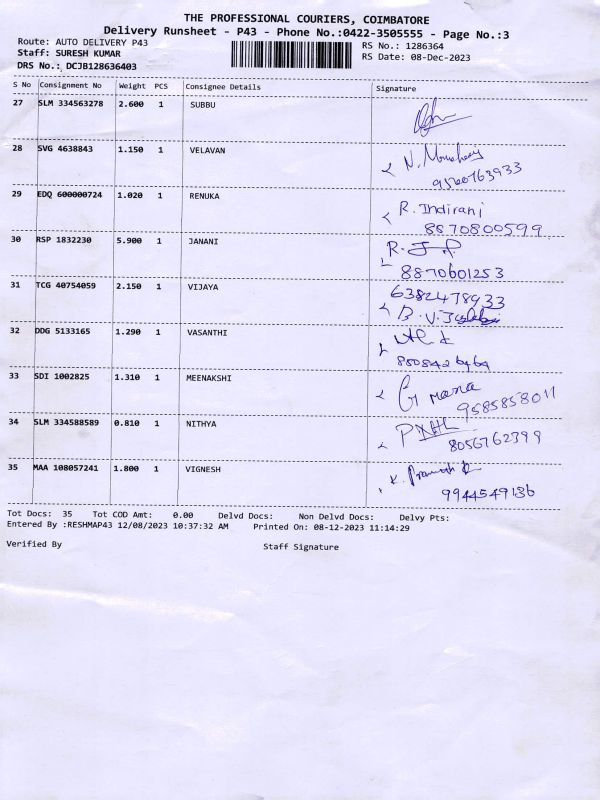 THE PROFESSIONAL COURIERS, COIMBATORE
Delivery Runsheet - P43 - Phone No.:0422-3505555 - Page No.:3
Route: AUTO DELIVERY P43
RS No.: 1286364
Staff: SURESH KUMAR
RS Date: 08-Dec-2023
DRS No.: DCJB128636403
S No Consignment No Weight PCS Consignee Details Signature
27 SLM 334563278 2.600 1 SUBBU
28 SVG 4638843 1.150 1 VELAVAN N.
29 EDQ 600000724 1.020 1 RENUKA R. Indirani
8870800599
30 RSP 1832230 5.900 1 JANANI R.
8870601253
31 TCG 40754059 2.150 1 VIJAYA 6382478933
B. V.
32 DDG 5133165 1.290 1 VASANTHI
33 SDI 1002825 1.310 1 MEENAKSHI G mana
9585858011
34 SLM 334588589 0.810 1 NITHYA
8056762399
35 MAA 108057241 1.800 1 VIGNESH K.
9944549136
Tot Docs: 35 Tot COD Amt: 0.00 Delvd Docs: Non Delvd Docs: Delvy Pts:
Entered By :RESHMAP43 12/08/2023 10:37:32 AM Printed On: 08-12-2023 11:14:29
Verified By Staff Signature